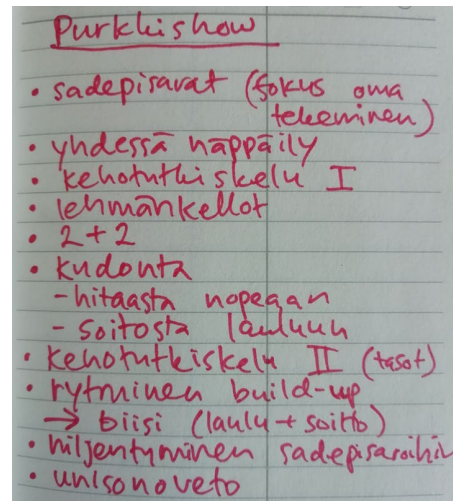 Purkkishow
• sadepisarat (fokus oma
tekeminen)
• yhdessä näppäily
• kehotutkiskelu I
• lehmänkellot
• 2+2
• kudonta
- hitaasta nopeaan
- soitosta lauluun
• kehotutkiskelu II (tasot)
• rytminen build-up
→ biisi (laulu + soitto)
• hiljentyminen sadepisaroihin
• unisonoveto